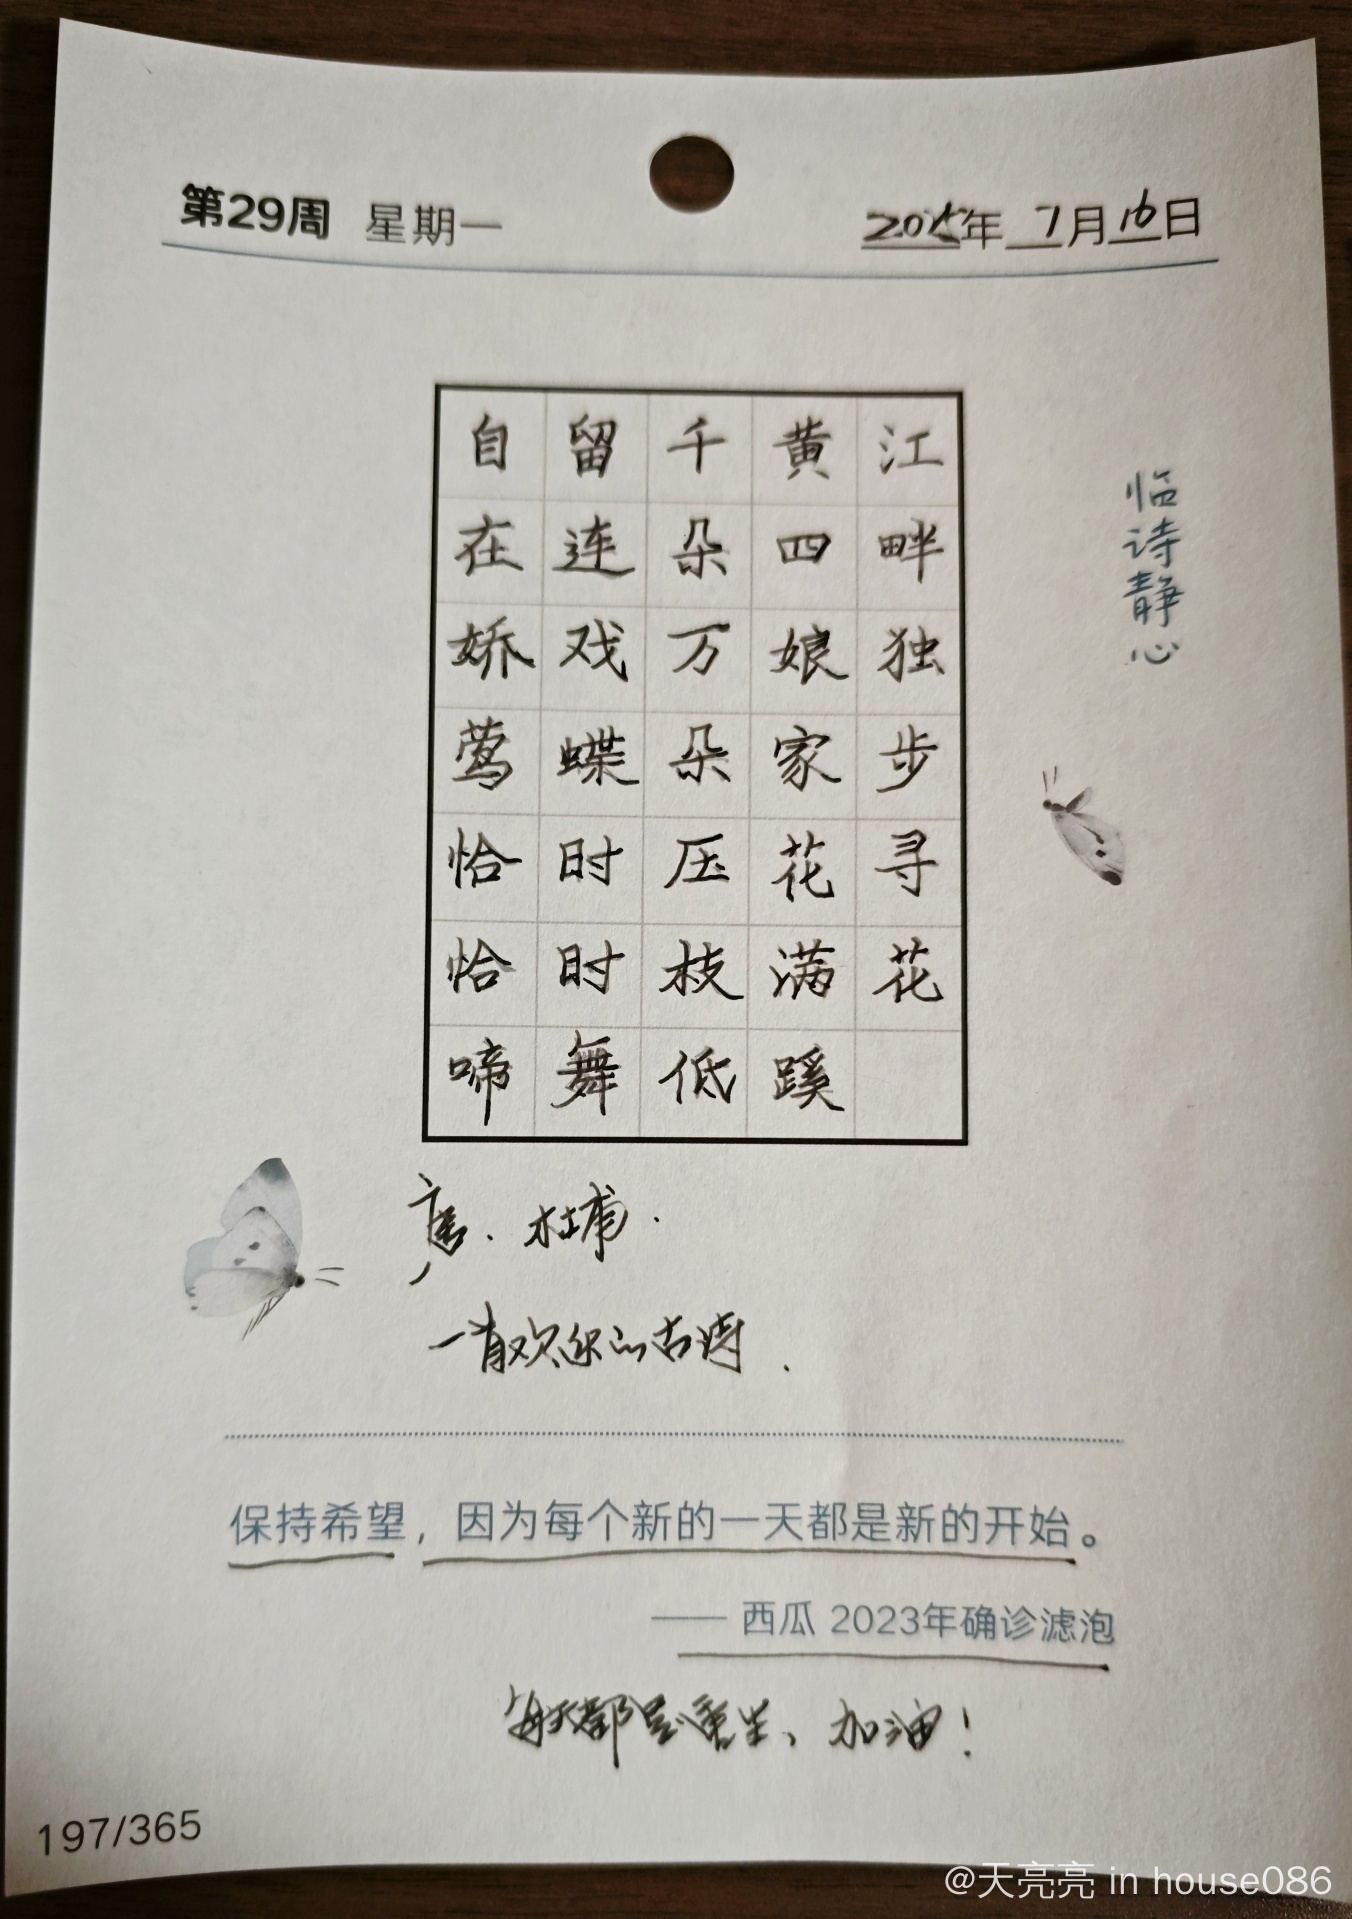 第29周 星期一
2025年 7月16日
临诗静心
江畔独步寻花
黄四娘家花满蹊
千朵万朵压枝低
留连戏蝶时时舞
自在娇莺恰恰啼
唐. 杜甫.
一首欢乐的古诗.
保持希望，因为每个新的一天都是新的开始。
—— 西瓜 2023年确诊滤泡
每天都是重生、加油！
197/365
@天亮亮 in house086